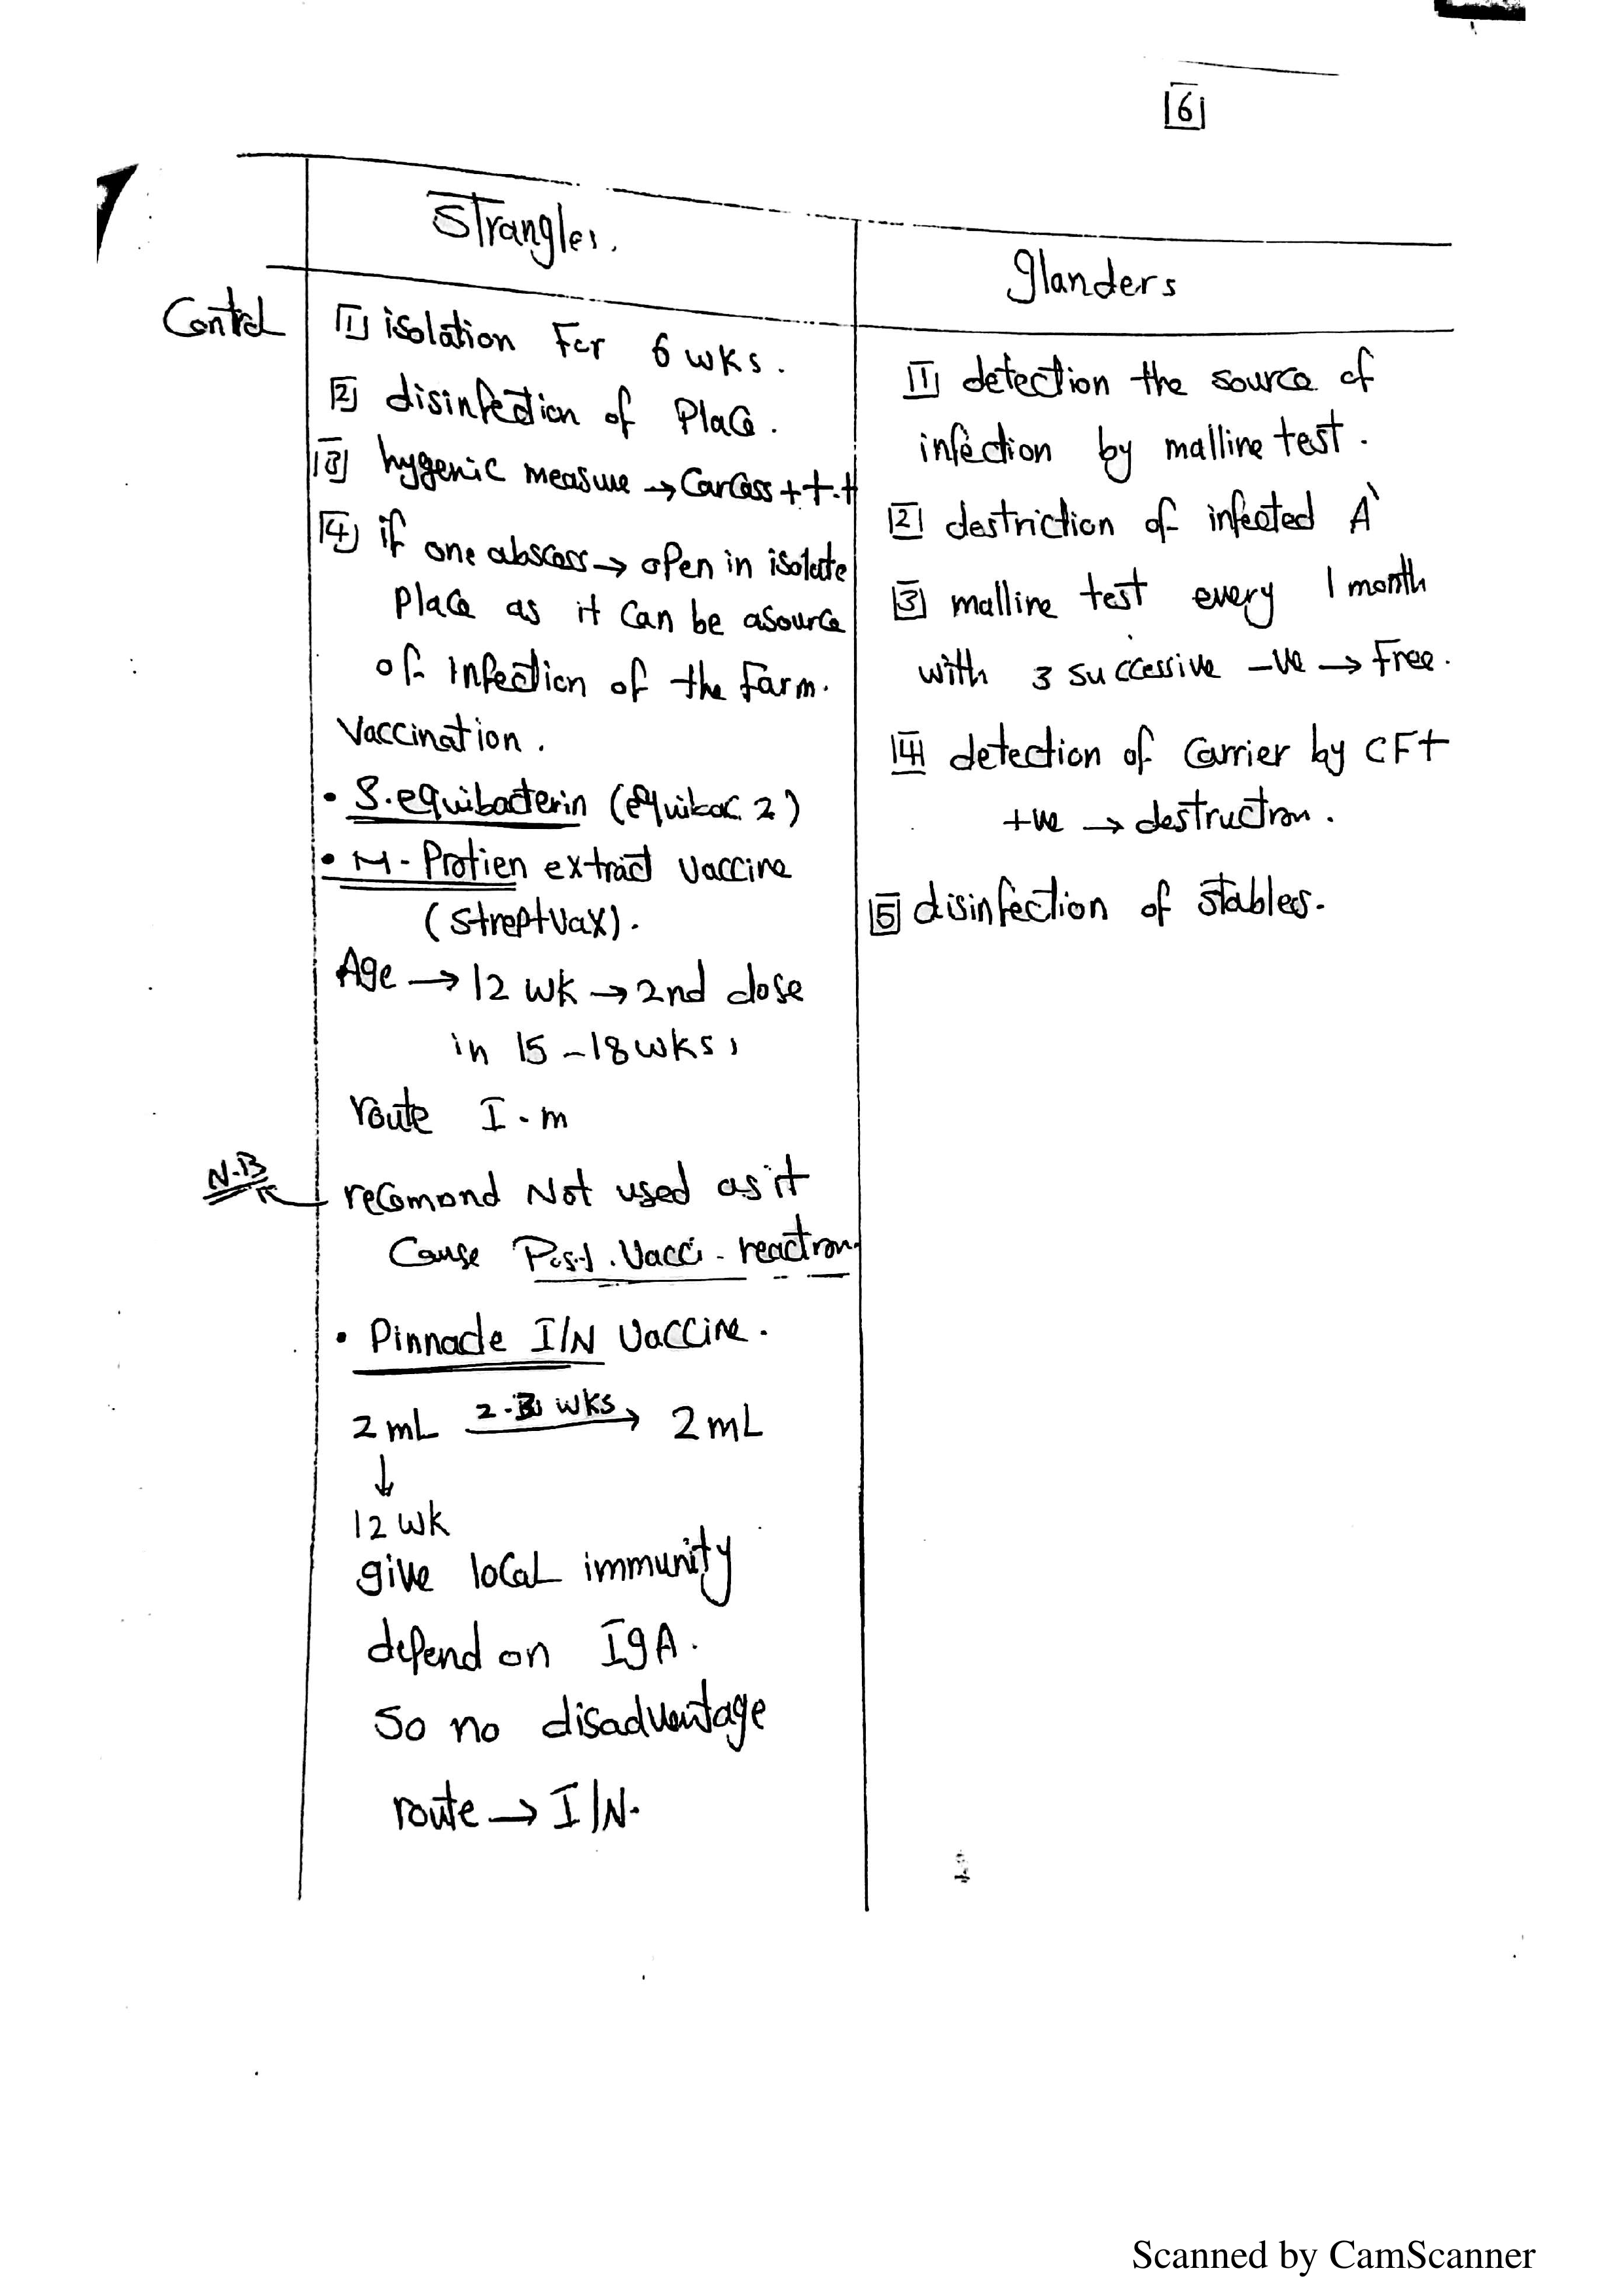 6
Strangles.
glanders
Control
1 isolation For 6 wks.
2 disinfection of Place.
3 hygenic measure → Carcass +++
4 if one abscess → open in isolate
Place as it can be asource
of infection of the Farm.
Vaccination.
• S.equibacterin (equibac 2)
• M-Protien extract vaccine
(streptvax).
Age → 12 wk → 2nd dose
in 15-18 wks,
route I.m
N.B
recomond Not used as it
Cause Post.Vacci-reaction.
• Pinnacle I/N Vaccine.
2 mL 2-3 wks → 2 mL
↓
12 wk
give local immunity
depend on IgA.
So no disadvantage
route → I/N.
1 detection the source of
infection by malline test.
2 destriction of infected A`
3 malline test every 1 month
with 3 successive -ve → Free.
4 detection of Carrier by CFt
+ve → destruction.
5 disinfection of stables.
Scanned by CamScanner